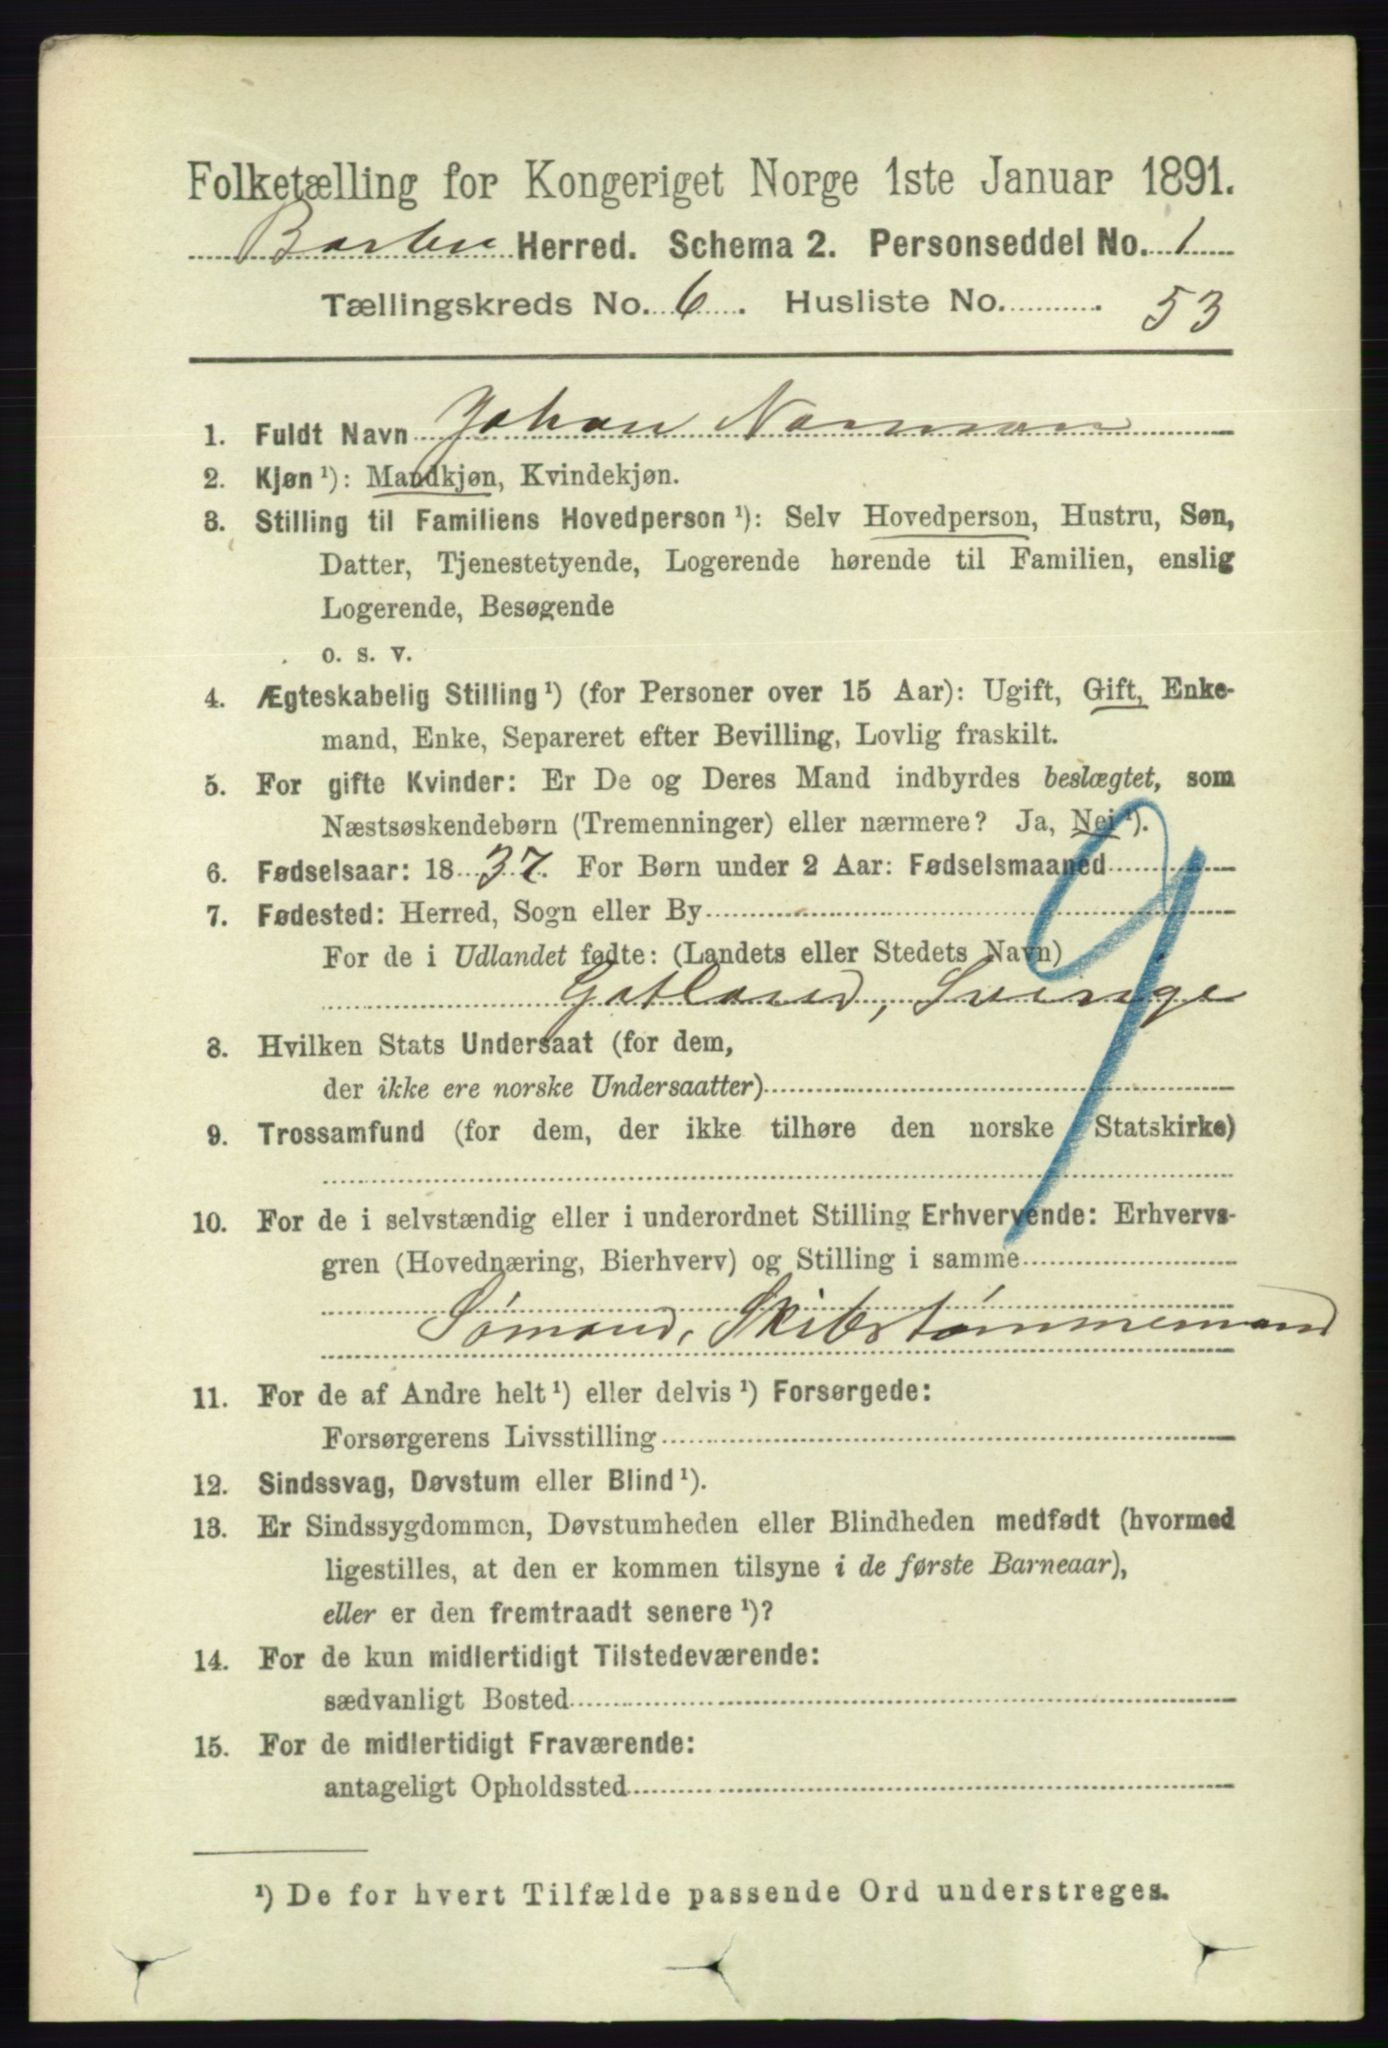 Folketælling for Kongeriget Norge 1ste Januar 1891.
Barbu Herred. Schema 2. Personseddel No. 1
Tællingskreds No. 6. Husliste No. 53
1. Fuldt Navn Johan Norman
2. Kjøn ¹): Mandkjøn, Kvindekjøn.
3. Stilling til Familiens Hovedperson ¹): Selv Hovedperson, Hustru, Søn,
Datter, Tjenestetyende, Logerende hørende til Familien, enslig
Logerende, Besøgende
o. s. v.
4. Ægteskabelig Stilling ¹) (for Personer over 15 Aar): Ugift, Gift, Enke-
mand, Enke, Separeret efter Bevilling, Lovlig fraskilt.
5. For gifte Kvinder: Er De og Deres Mand indbyrdes beslægtet, som
Næstsøskendebørn (Tremenninger) eller nærmere? Ja, Nei ¹).
6. Fødselsaar: 1837. For Børn under 2 Aar: Fødselsmaaned
7. Fødested: Herred, Sogn eller By
For de i Udlandet fødte: (Landets eller Stedets Navn)
Gotland, Sverige
9
8. Hvilken Stats Undersaat (for dem,
der ikke ere norske Undersaatter)
9. Trossamfund (for dem, der ikke tilhøre den norske Statskirke)
10. For de i selvstændig eller i underordnet Stilling Erhvervende: Erhvervs-
gren (Hovednæring, Bierhverv) og Stilling i samme
Sømand, Skibstømmemand
11. For de af Andre helt ¹) eller delvis ¹) Forsørgede:
Forsørgerens Livsstilling
12. Sindssvag, Døvstum eller Blind ¹).
13. Er Sindssygdommen, Døvstumheden eller Blindheden medfødt (hvormed
ligestilles, at den er kommen tilsyne i de første Barneaar),
eller er den fremtraadt senere ¹)?
14. For de kun midlertidigt Tilstedeværende:
sædvanligt Bosted
15. For de midlertidigt Fraværende:
antageligt Opholdssted
¹) De for hvert Tilfælde passende Ord understreges.